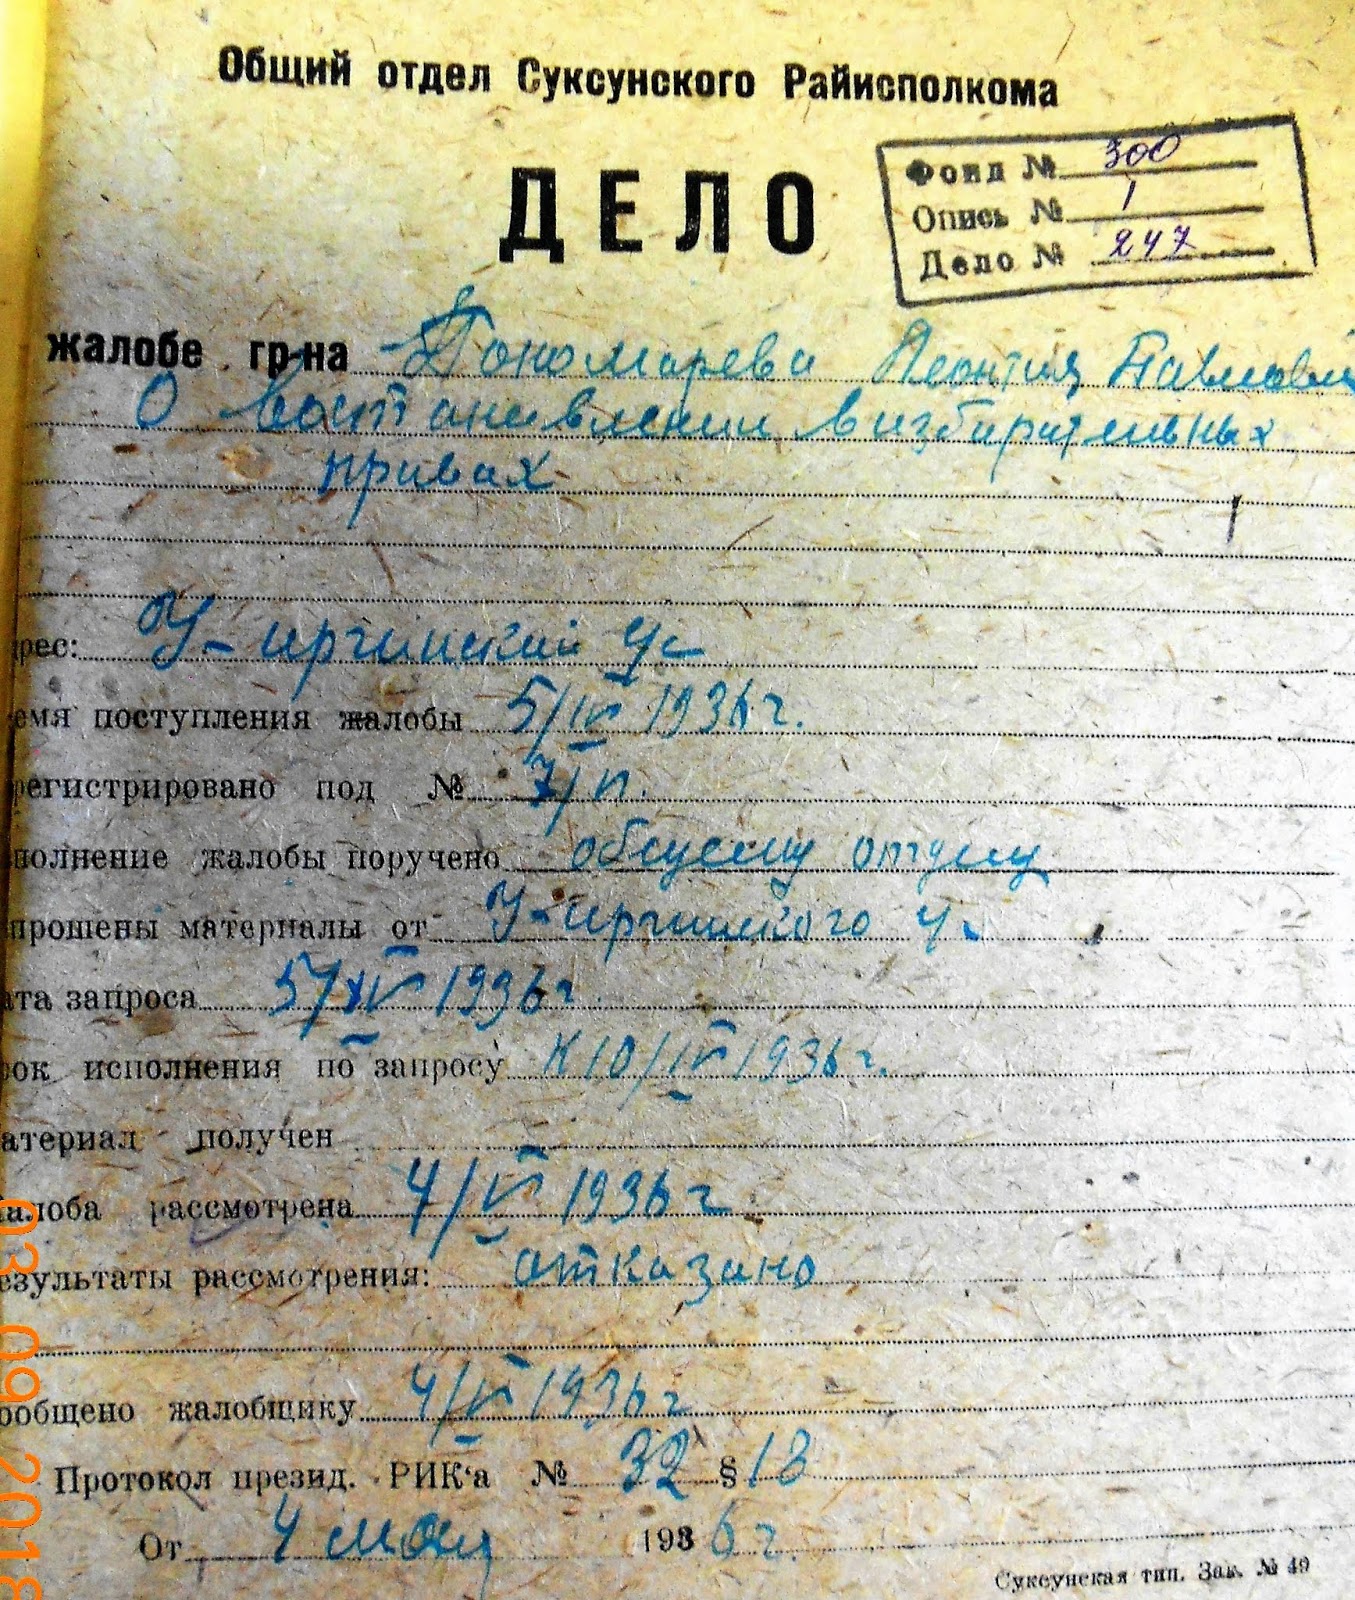 Общий отдел Суксунского Райисполкома
ДЕЛО
Фонд № 300
Опись № 1
Дело № 247
жалобе гр-на Пономарева Леонтия Павлови
О востановлении в избирательных
правах
рес: У-иргинский ус
емя поступления жалобы 5/IV 1936 г.
регистрировано под № 7/п.
полнение жалобы поручено общему отделу
прошены материалы от У-иргинского
ата запроса 5/IV 1936 г
рок исполнения по запросу К 10/IV 1936 г.
атериал получен
алоба рассмотрена 4/V 1936 г
езультаты рассмотрения: отказано
ообщено жалобщику 4/V 1936 г
Протокол презид. РИК'а № 32 § 18
От 4 мая 1936 г.
Суксунская тип. Зак. № 49
03 09 2018